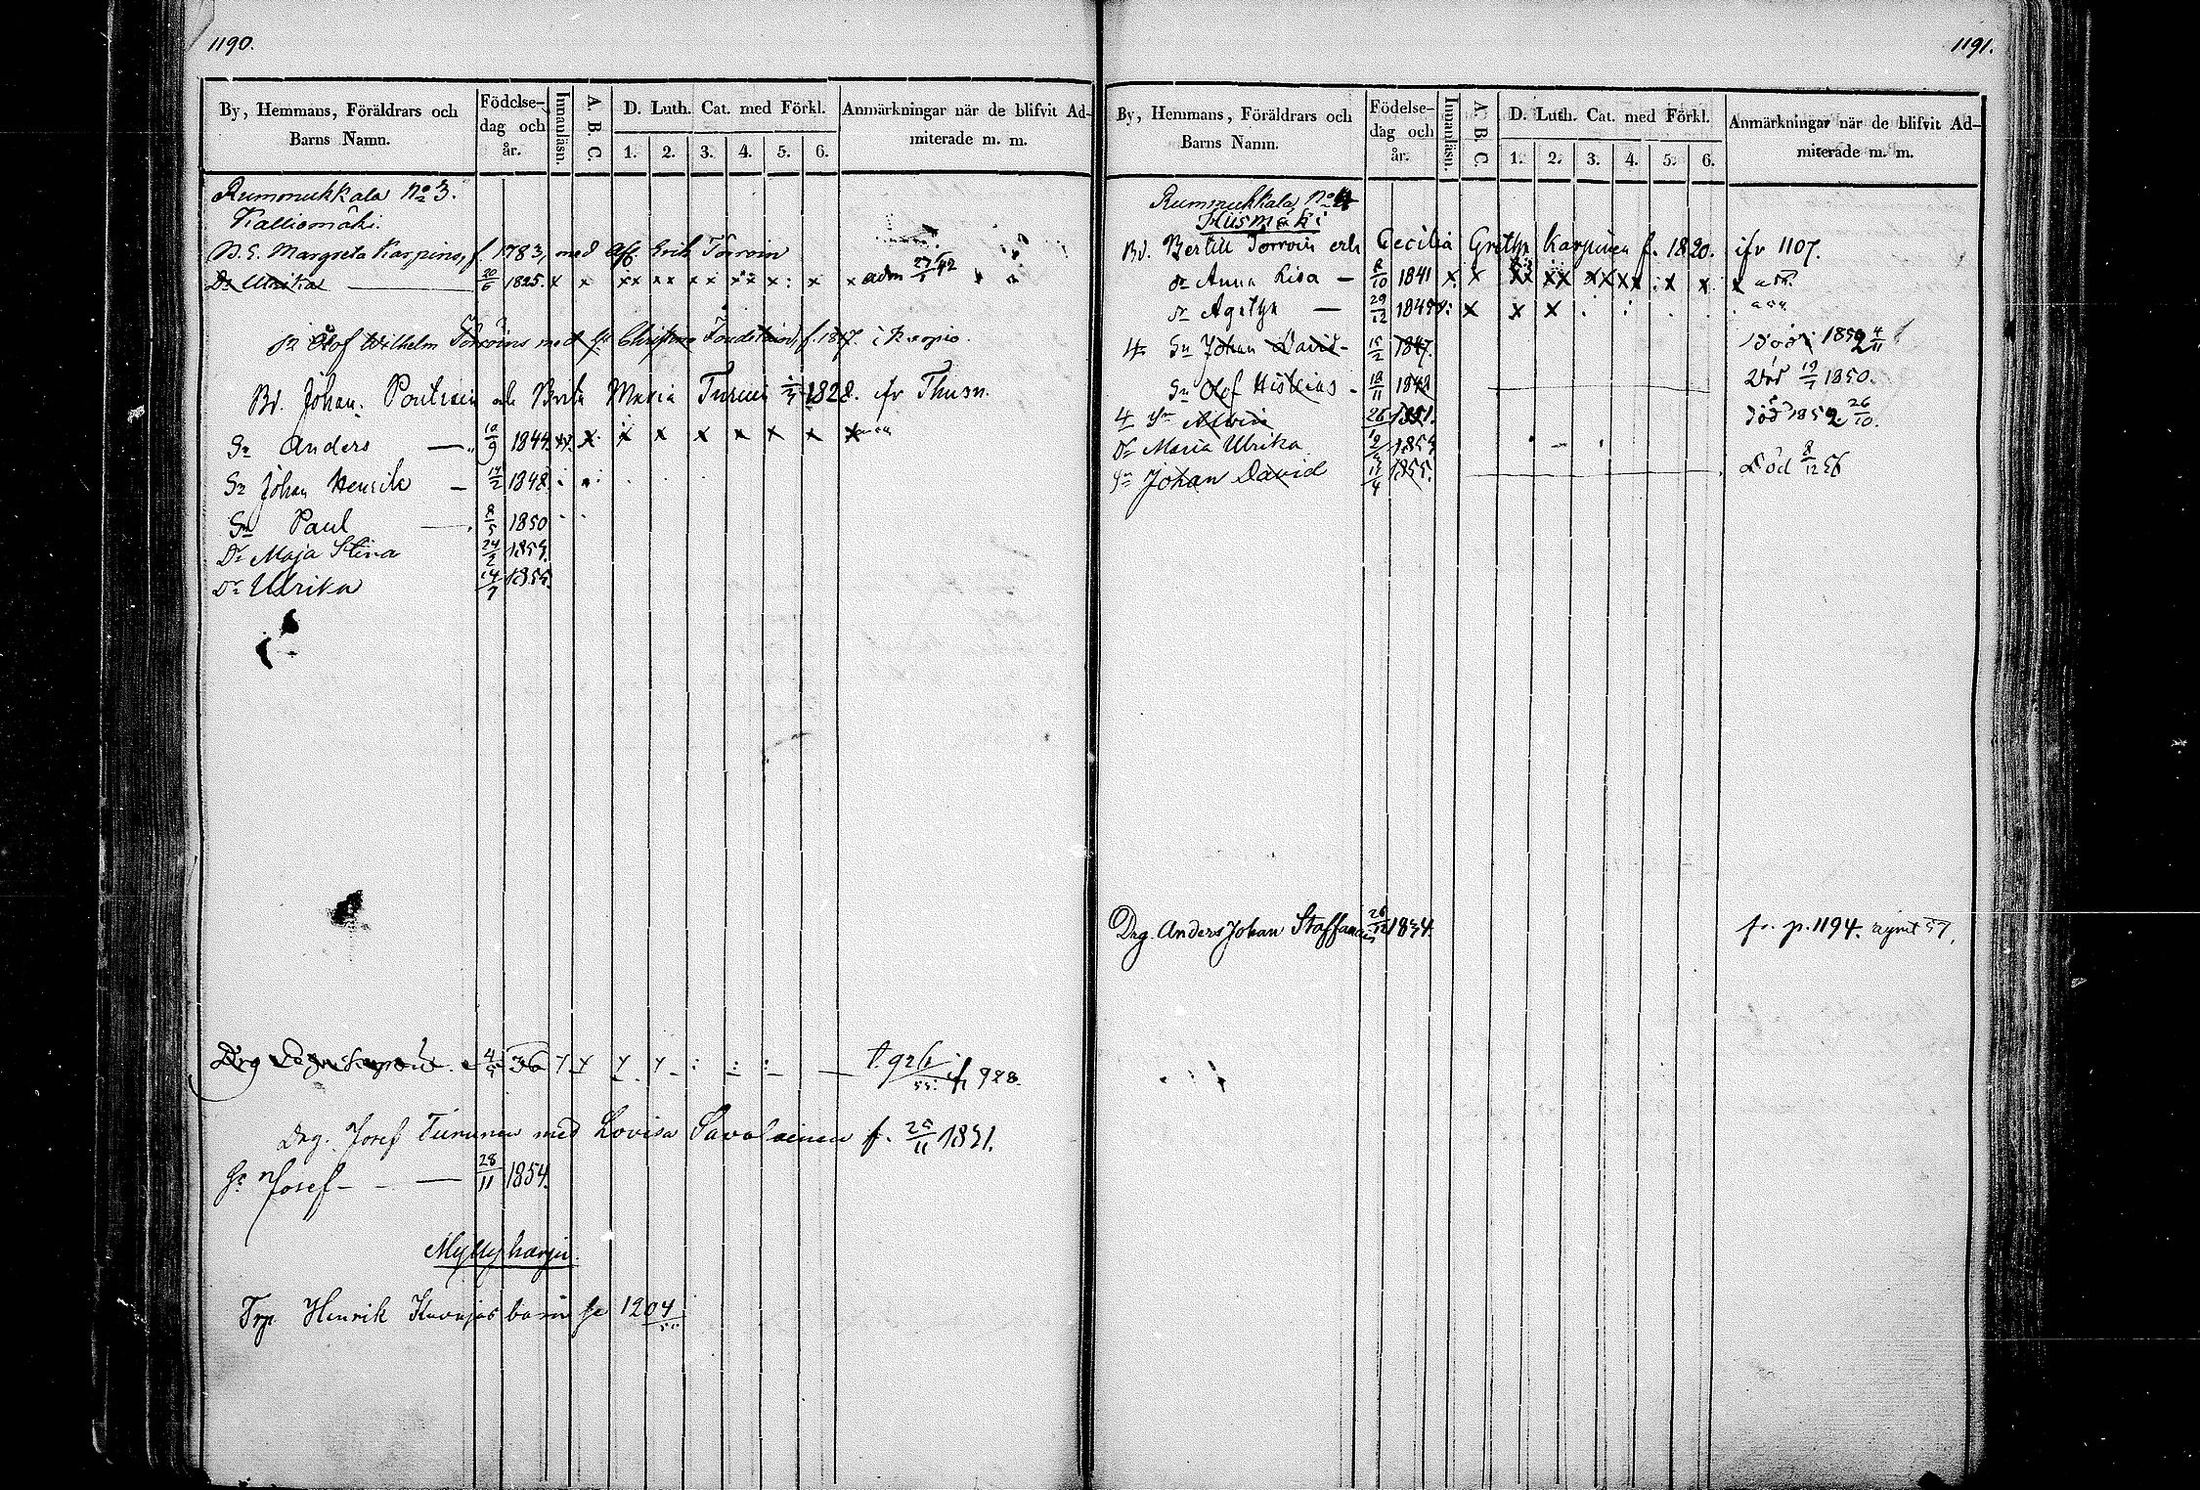 1190.
By, Hemmans, Föräldrars och Barns Namn.
Födelse-dag och år.
Innanläsn.
A. B. C.
D. Luth. Cat. med Förkl.
1. 2. 3. 4. 5. 6.
Anmärkningar när de blifvit Ad-miterade m. m.
Rummukkala No 3.
Kalliomäki.
Margreta Karpinen, f. 1783, med Erik Torroin
Dr Ulrika 20/6 1825. x x xx xx xx xx x: x x adm 27/ 42
Olof Wilhelm Torroins med Christina f. 1817. i Kuopio.
Bd. Johan Poutiain och Brita Maria Turuin 1828. ifr Thusn.
Sn Anders — 10/9 1844. x x x x x x x
Sn Johan Henrik — 14/2 1848.
Sn Paul — 8/5 1850
Dr Maja Stina 24/2 1854.
Dr Ulrika 14/7 1855.
Drg 4/ 36 ifr 928.
Drg. Josef Turunen med Lovisa Savolainen f. 25/11 1831.
Sn Josef — 28/11 1854.
Myllyharju.
Trp. Henrik barn se 1204
1191.
By, Hemmans, Föräldrars och Barns Namn.
Födelse-dag och år.
Innanläsn.
A. B. C.
D. Luth. Cat. med Förkl.
1. 2. 3. 4. 5. 6.
Anmärkningar när de blifvit Ad-miterade m. m.
Rummukkala No 4
Hiismäki
Bd. Bertill Torroin och Cecilia Gretha Karpinen f. 1820. ifr 1107.
dr Anna Lisa — 8/10 1841 x x xx xx xx xx x x x
dr Agatha — 29/12 x x x
Sn Johan David 15/2 1847. död 1852 4/11
Sn Olof Hiskias 18/11 1848 Död 19/7 1850.
Sn Alwin 26 1851. död 1852 26/10.
Dr Maria Ulrika
Sn Johan David 17/4 1855. Död 8/12 56
Drg. Anders Johan Staffanain 26/12 1834. fr. p. 1194. 57.